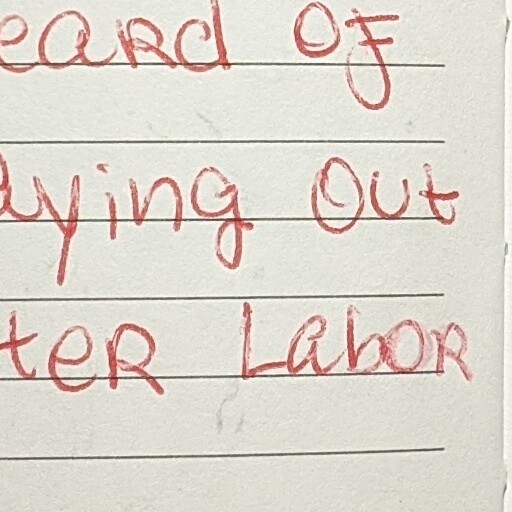 eaRd Of
ying Out
teR LaboR